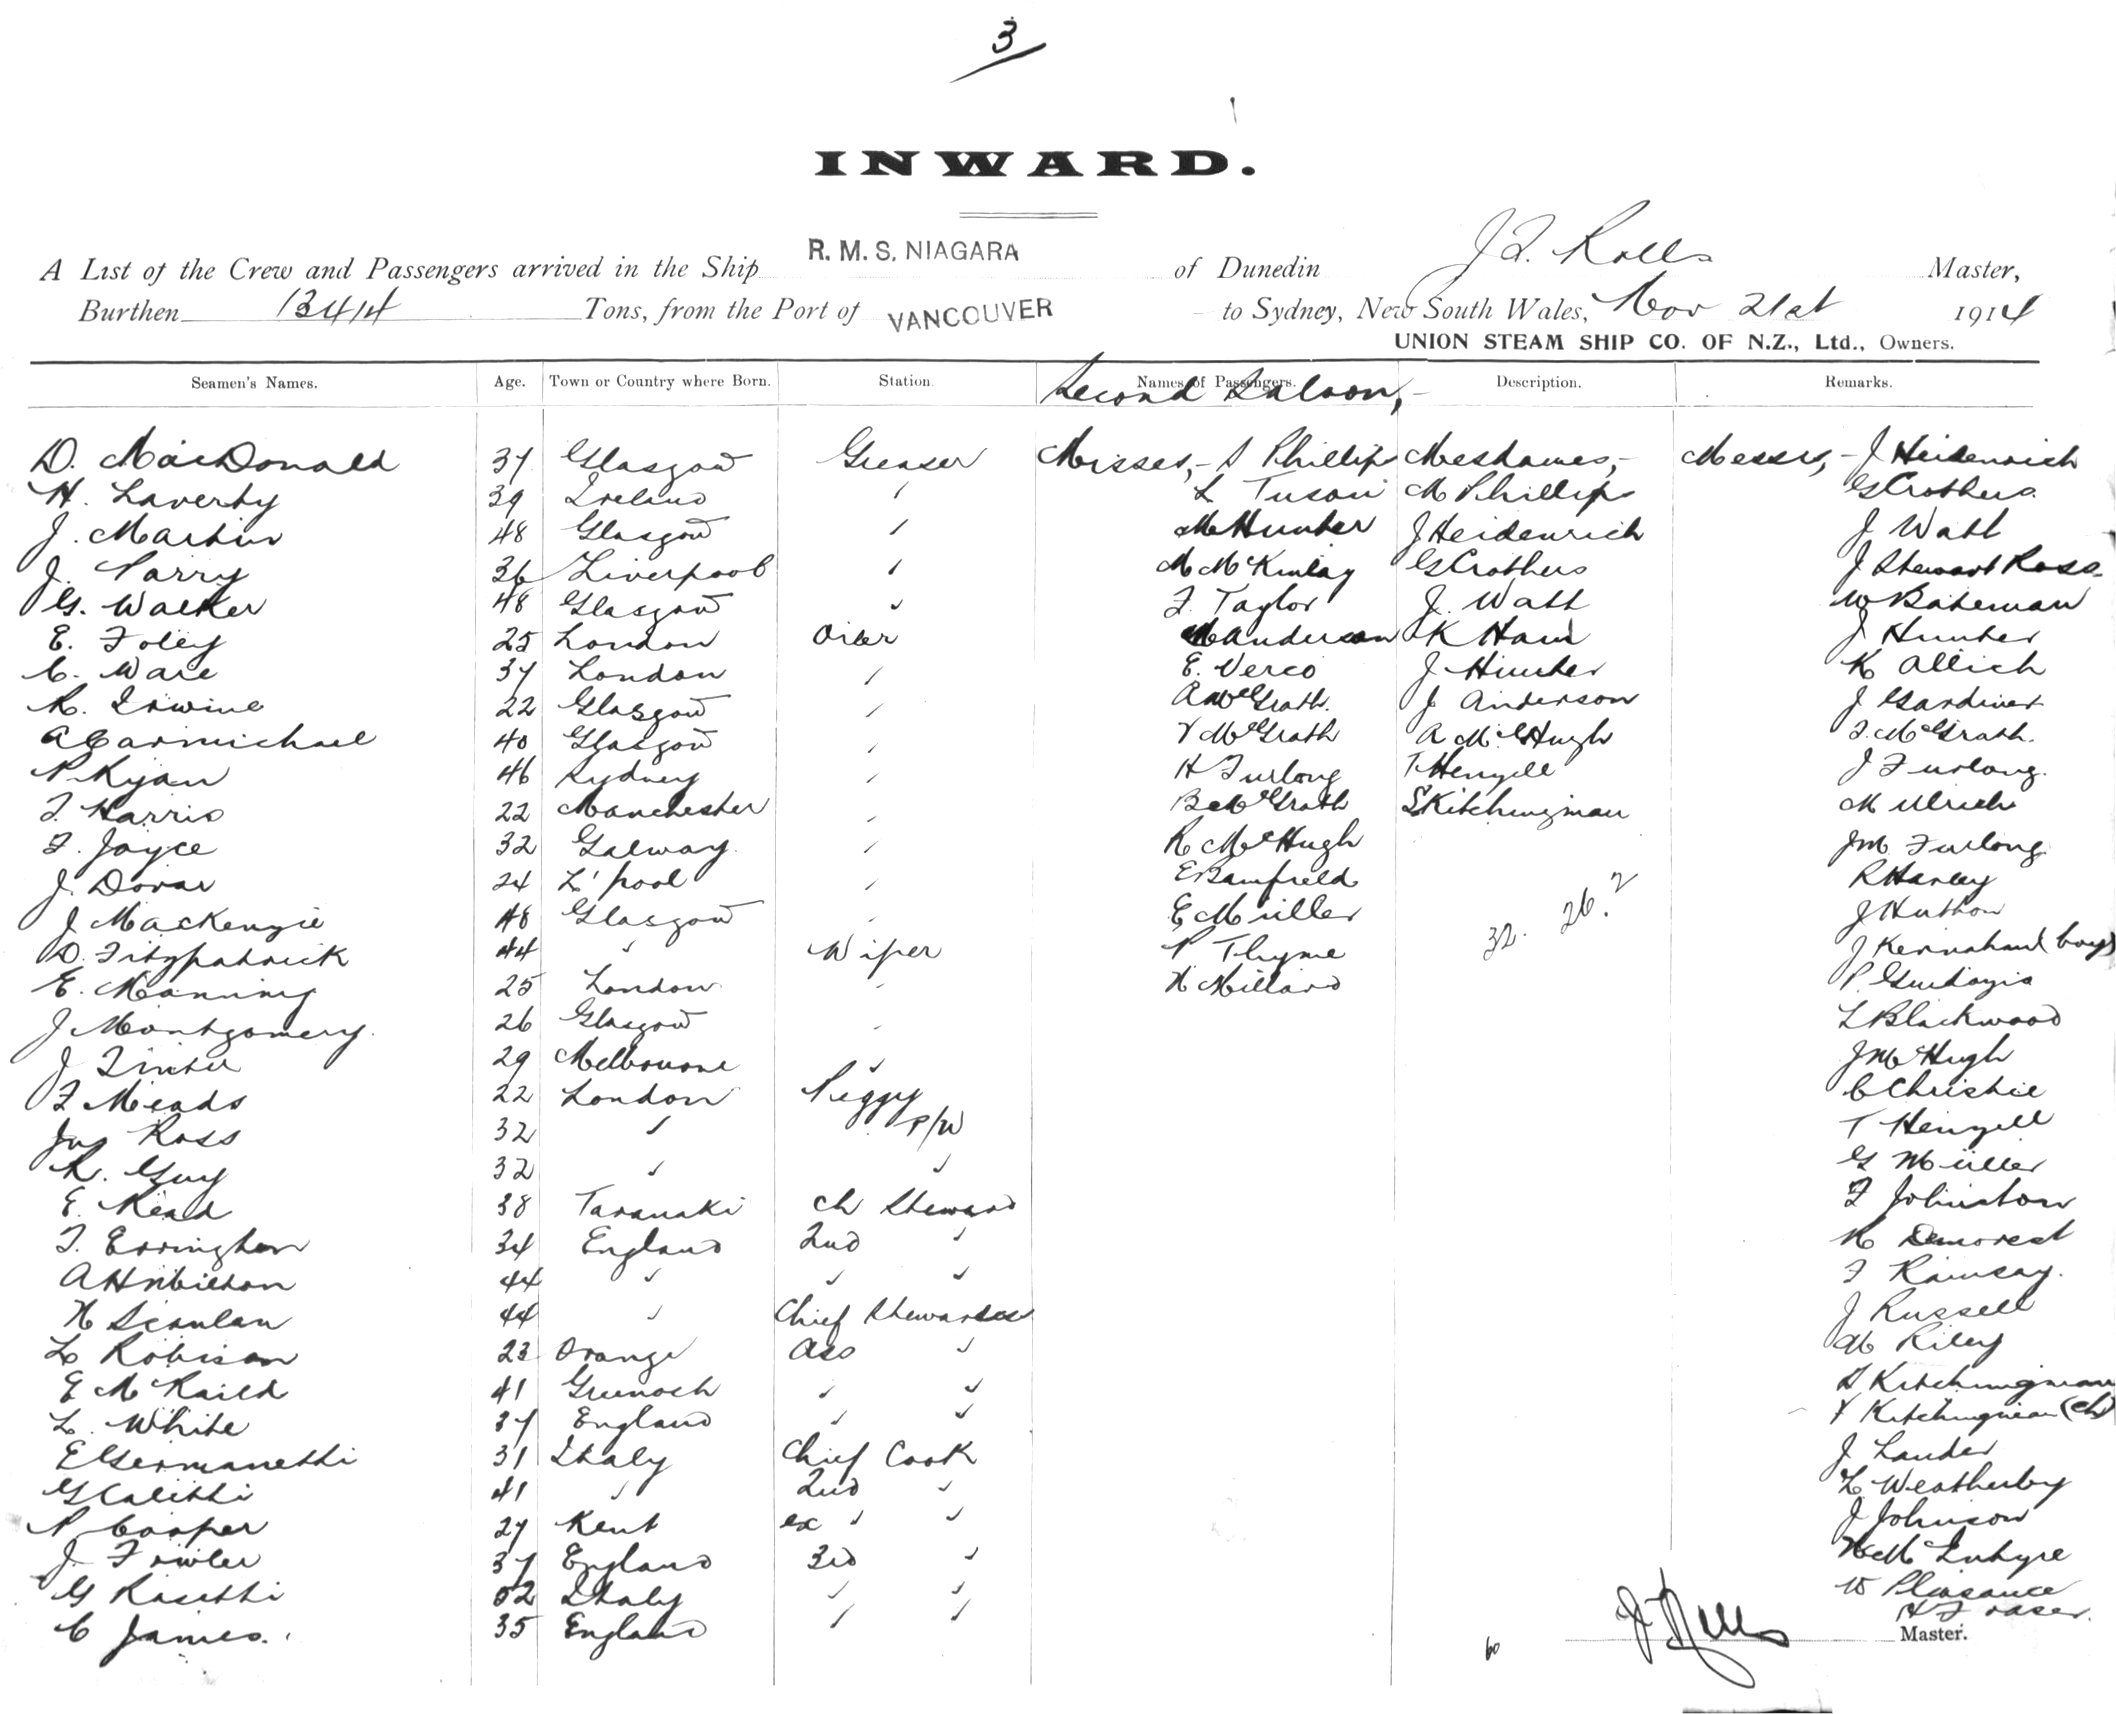 3
INWARD.
A List of the Crew and Passengers arrived in the Ship R. M. S. NIAGARA of Dunedin J. Rolls Master,
Burthen 13414 Tons, from the Port of VANCOUVER to Sydney, New South Wales, Nov 21st 1914
UNION STEAM SHIP CO. OF N.Z., Ltd., Owners.
Seamen's Names. Age. Town or Country where Born. Station. Names of Passengers. Description. Remarks.
Second Saloon,-
D. MacDonald 37 Glasgow Greaser Misses,- S Phillips Mesdames,- Messrs,- J Heidenrich
H. Laverty 39 Ireland " L Tuson M Phillips G Crothers
J. Martin 48 Glasgow " M Hunter J Heidenrich J Watt
J. Parry 36 Liverpool " M McKinlay G Crothers J Stewart Ross
G. Walker 48 Glasgow " F. Taylor J. Watt W Bateman
E. Foley 25 London Oiler M Anderson K Ham J Hunter
C. Ware 37 London " E. Verco J Hunter K Allich
R. Irwine 22 Glasgow " A McGrath J Anderson J Gardiner
A Carmichael 40 Glasgow " Y McGrath A McHugh F. McGrath
P Ryan 46 Sydney " H Furlong T Hengell J Furlong
F Harris 22 Manchester " B McGrath S Kitchingman M Ulrich
F. Joyce 32 Galway " R McHugh JM Furlong
J Doran 24 L'pool " E Bamfield R Harley
J MacKenzie 48 Glasgow " E Müller 32. 26.2 J Hutton
D. Fitzpatrick 44 " Wiper P Thyme J Kernahan (boy)
E. Manning 25 London " H Millard P.
J Montgomery 26 Glasgow " L Blackwood
J 29 Melbourne " J McHugh
F Meads 22 London Peggy C Christie
Jas Ross 32 " P/W T Hengell
R. Guy 32 " " G Müller
E. Read 38 Taranaki Ch Steward F Johnston
F. Errington 34 England 2nd " R Demorest
A H 44 " " " F Ramsay
H Scanlan 44 " Chief Stewardess J Russell
L Robison 23 Orange Ass " W Riley
E McKaild 41 Greenock " " S Kitchingman
L. White 37 England " " Y Kitchingman (Ch)
E Germanetti 31 Italy Chief Cook J Lauder
G Caletti 41 " 2nd " L Weatherby
P Cooper 27 Kent ex " " J Johnson
J. Fowler 37 England 3rd " H McIntyre
G Rasetti 52 Italy " " W Pleasance
C James. 35 England " " H Fraser.
60 J Rolls Master.